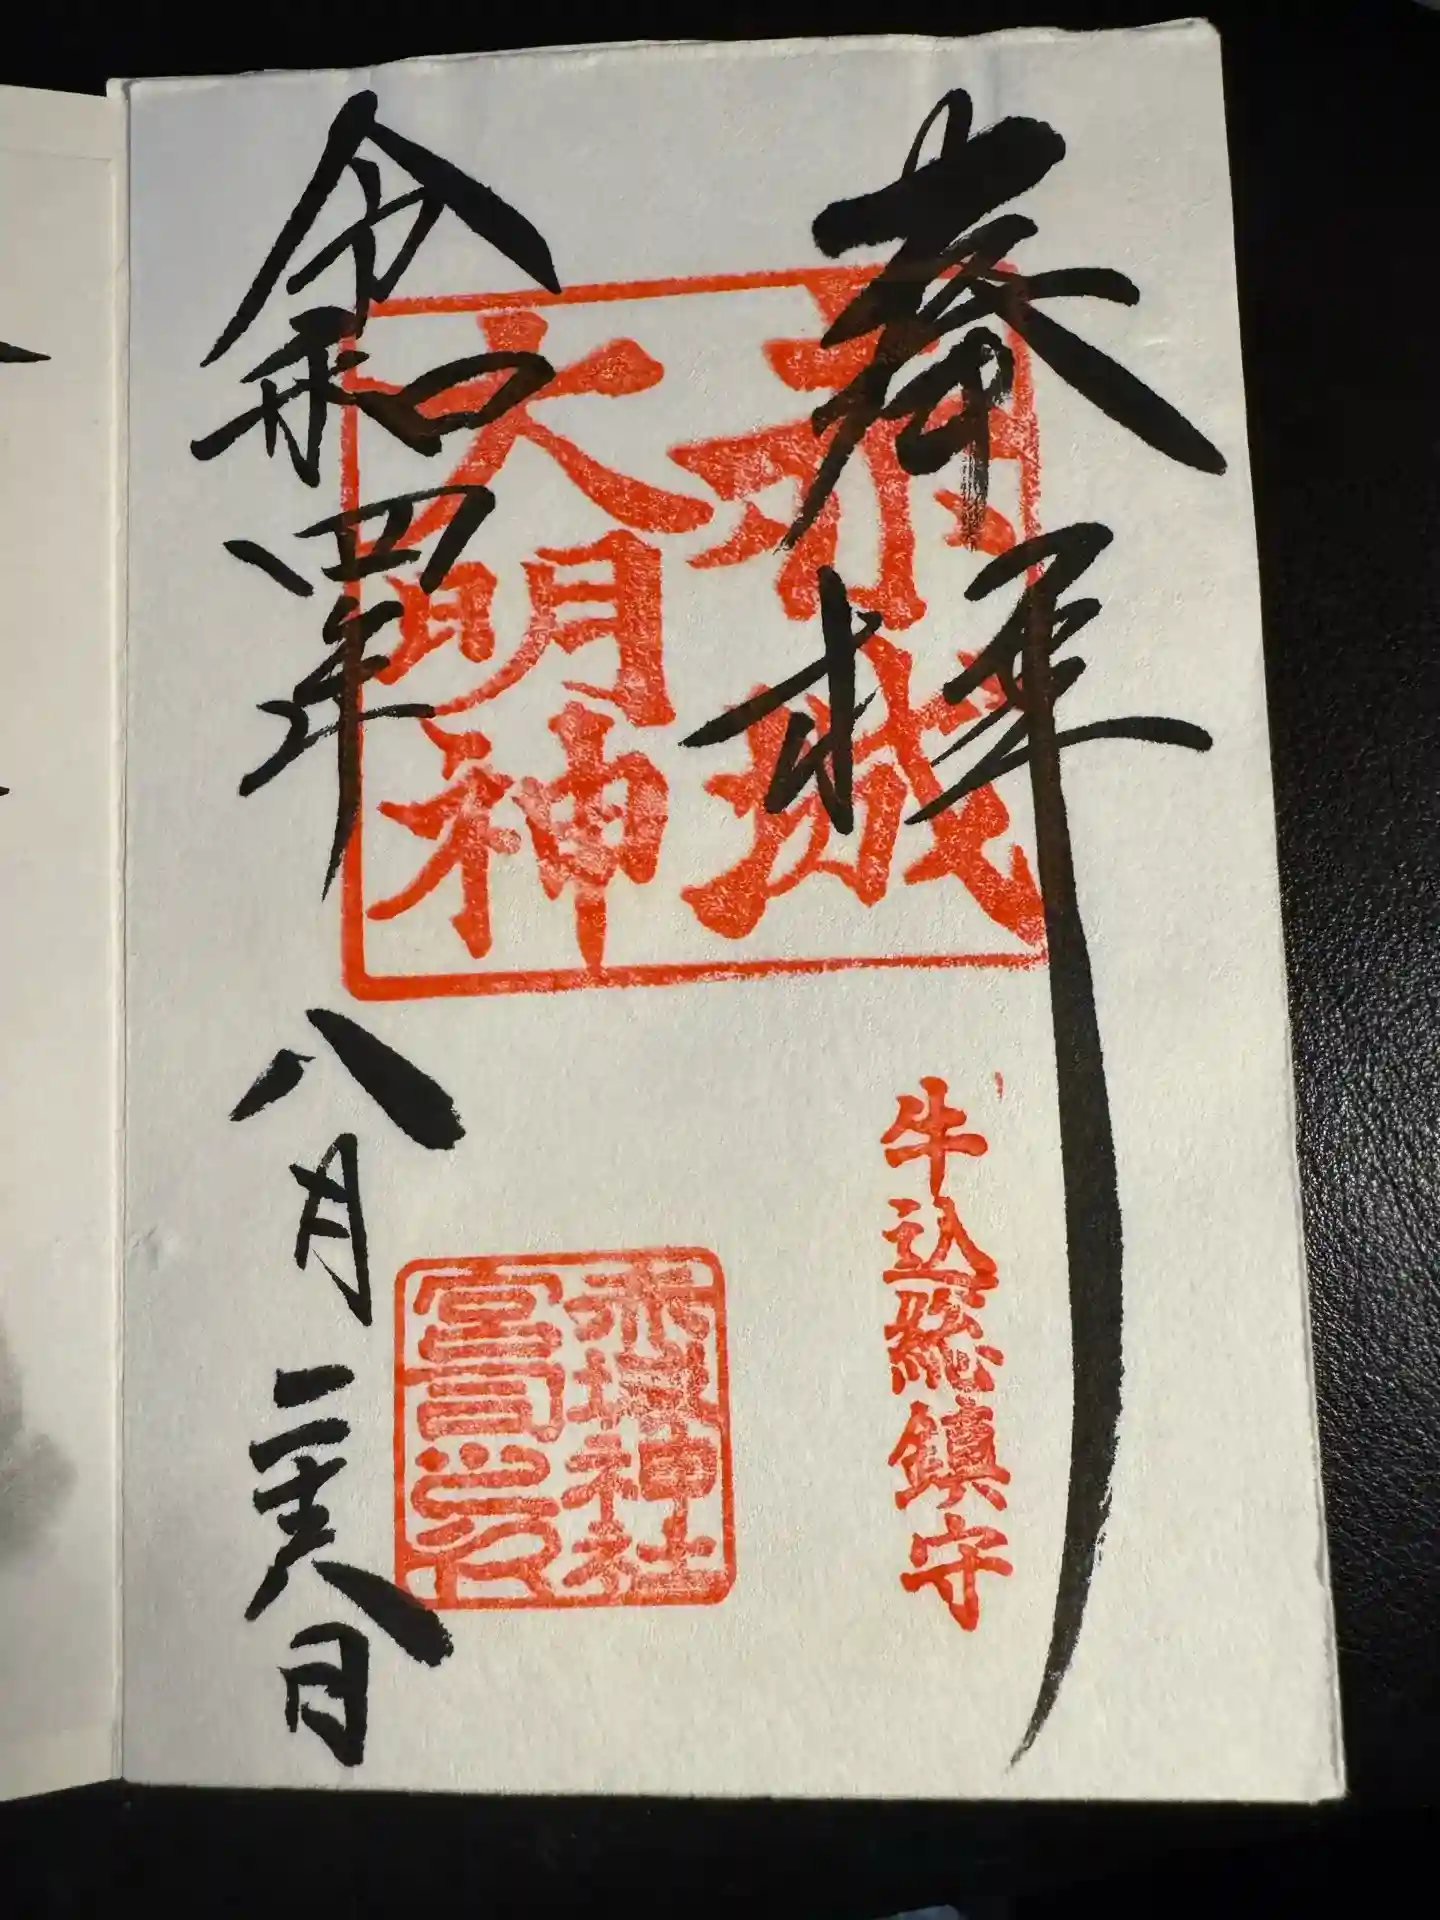 奉拝
赤城
大明神
牛込総鎮守
赤城神社
宮司之印
令和四年八月二十八日